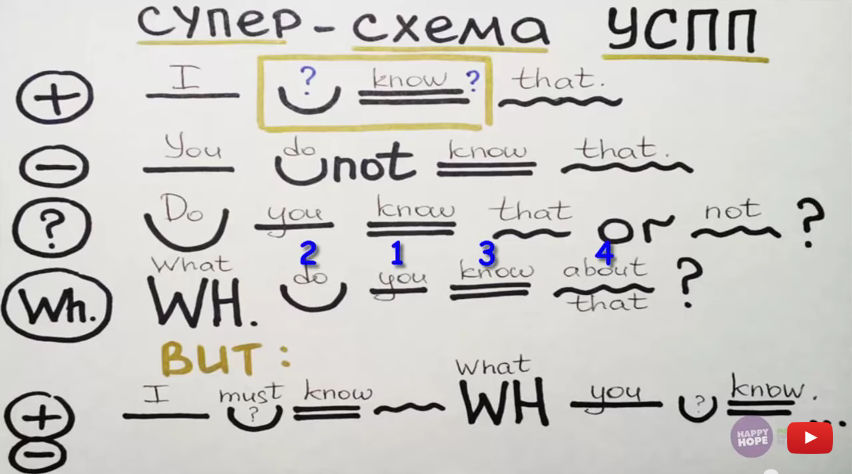 СУПЕР - СХЕМА УСПП
+ I ? know ? that.
− You do not know that.
? Do you know that or not ?
2 1 3 4
What do you know about
Wh. WH. that ?
BUT:
What
+ I must ? know WH you ? know. ...
−
HAPPY HOPE